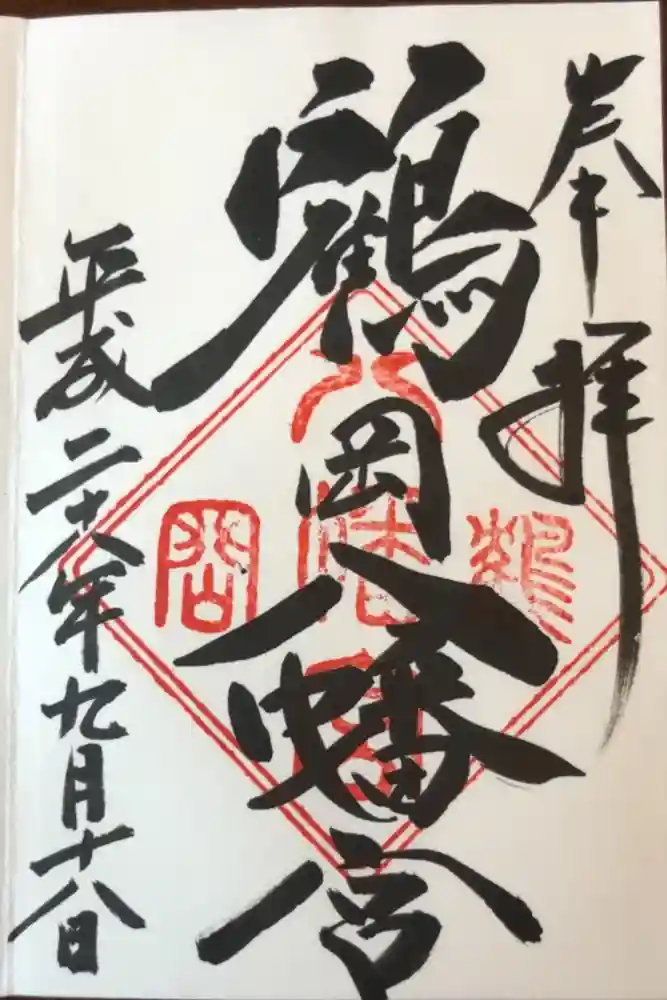 奉拝
鶴岡八幡宮
平成二十八年九月十八日